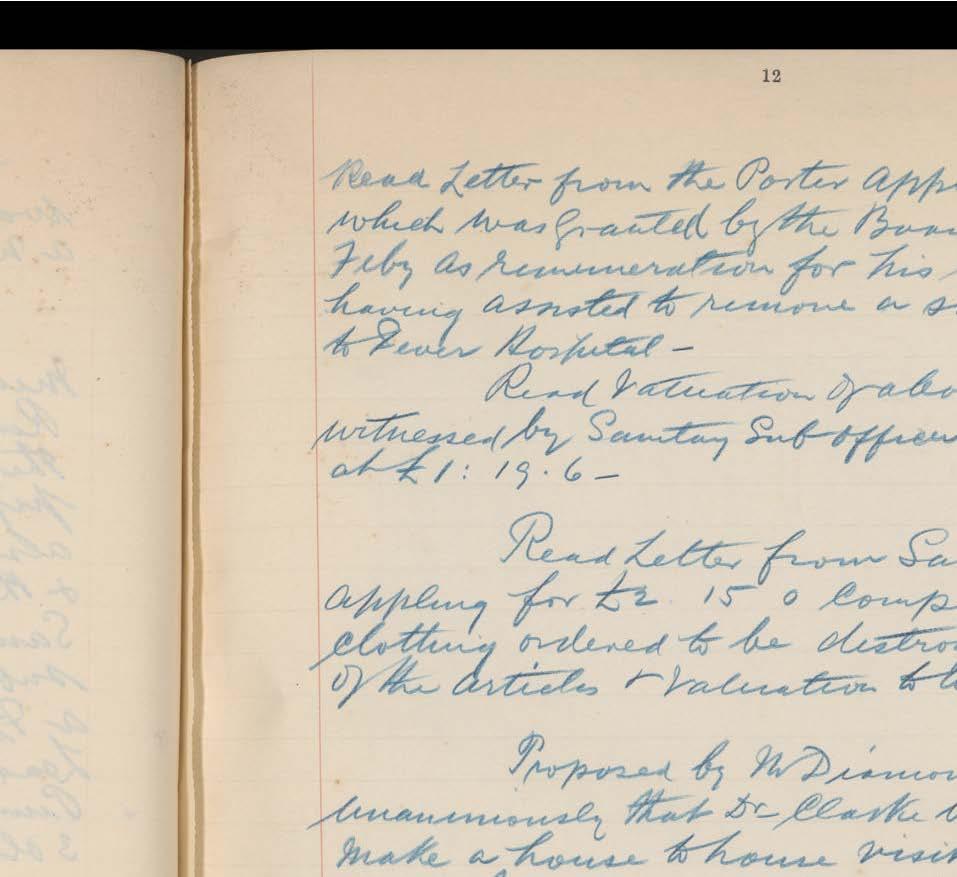 12
Read Letter from the Porter App
which was granted by the Boar
Feby as remuneration for his
having assisted to remove a s
to Fever Hospital -
Read Valuation of abo
witnessed by Sanitay Sub-officer
at £1: 19. 6 -
Read Letter from Sa
appling for £2. 15 0 Comp
clothing ordered to be destro
of the articles + Valuation to b
Proposed by Mr Diamon
unanimously that Dr- Clarke
make a house to house visit